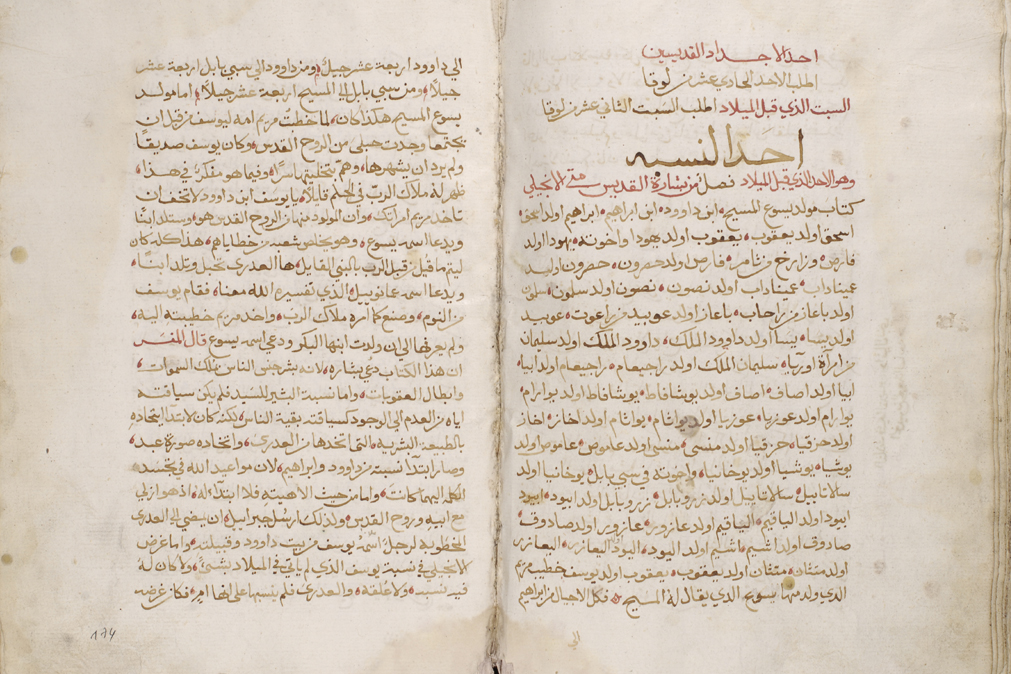 احد الاجداد القديسين
اطلب الاحد الحادي عشر من لوقا
السبت الذي قبل الميلاد اطلب السبت الثاني عشر من لوقا
احد النسبه
وهو الاحد الذي قبل الميلاد فصل من بشارة القديس متى الانجيلي
كتاب مولد يسوع المسيح ابن داوود ابن ابراهيم ابراهيم اولد اسحق
اسحق اولد يعقوب يعقوب اولد يهودا واخوته يهودا اولد
فارص وزارخ من ثامر فارص اولد حصرون حصرون اولد
عميناداب عميناداب اولد نصون نصون اولد سلون سلون
اولد باعاز من راحاب باعاز اولد عوبيد من راعوت عوبيد
اولد يسا يسا اولد داوود الملك داوود الملك اولد سليمان
من امرأة اوريا سليمان الملك اولد راجيعام راجيعام اولد ابيا
ابيا اولد اصاف اصاف اولد يوشافاط يوشافاط اولد يوارام
يوارام اولد عوزيا عوزيا اولد يواثام يواثام اولد احاز احاز
اولد حزقيا حزقيا اولد منسى منسى اولد عاموص عاموص اولد
يوشيا يوشيا اولد يوخانيا واخوته في سبي بابل يوخانيا اولد
سالاتاييل سالاتاييل اولد زروبابل زروبابل اولد ابيود ابيود
ابيود اولد الياقيم الياقيم اولد عازور عازور اولد صادوق
صادوق اولد اشيم اشيم اولد اليود اليود اليعازر اليعازر
اولد متثان متثان اولد يعقوب يعقوب اولد يوسف خطيب مريم
الذي ولد منها يسوع الذي يقال له المسيح فكل الاجيال من ابراهيم
الى
الى داوود اربعة عشر جيلا ومن داوود الى سبي بابل اربعة عشر
جيلا ومن سبي بابل الى المسيح اربعة عشر جيلا اما مولد
يسوع المسيح هكذا كان لما خطبت مريم امه ليوسف من قبل ان
يجتمعا وجدت حبلى من الروح القدس وكان يوسف صديقا
ولم يرد ان يشهرها وهم بتخليتها سرا وفيما هو مفكر في هذا
ظهر له ملاك الرب في الحلم قايلا يا يوسف ابن داوود لا تخف ان
تاخذ مريم امراتك وأن المولود منها من الروح القدس هو وستلد ابنا
ويدعا اسمه يسوع وهو يخلص شعبه من خطاياهم هذا كله كان
ليتم ما قيل من قبل الرب بالنبي القايل ها العدرى تحبل وتلد ابنا
ويدعا اسمه عمانوييل الذي تفسيره الله معنا فقام يوسف
من النوم وصنع كما امره ملاك الرب واخد مريم خطيبته اليه
ولم يعرفها الى ان ولدت ابنها البكر ودعي اسمه يسوع قال المفسر
ان هذا الكتاب دعي بشاره لانه بشر جنس الناس بملك السموات
وابطال العقوبات واما نسبة البشير للسيد فلم يكن سياقته
اياه من العدم الى الوجود كسياقته بقية الناس لكنه كان لابتدا اتحاده
بالطبيعه البشريه التي اتخدها من العدرى واتخاده صورة عبد
وصار ابتدا نسبته من داوود وابراهيم لان مواعيد الله في تجسد
الكلمه اليهما كانت واما من حيث الاهيته فلا ابتداء له اذ هو ازلي
مع ابيه وروح القدس ولذلك ارسل جبراييل ان يمضي الى العدرى
المخطوبه لرجل اسمه يوسف من بيت داوود وقبيلته واما غرض
الانجيلي في نسبة يوسف الذي لم ياتي في الميلاد بشيء ولا كان له
فيه نسبه ولا علقه والعدرى فلم ينسبها على انها ام فكان غرضه
174